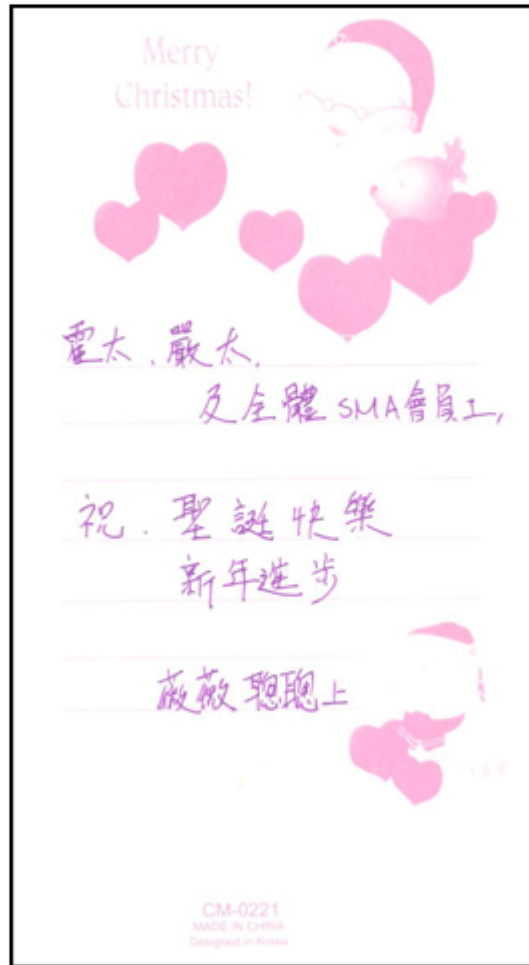 Merry
Christmas!
霍太、嚴太,
及全體 SMA會員工,
祝. 聖誕快樂
新年進步
薇薇 聰聰上
CM-0221
MADE IN CHINA
Designed in Korea